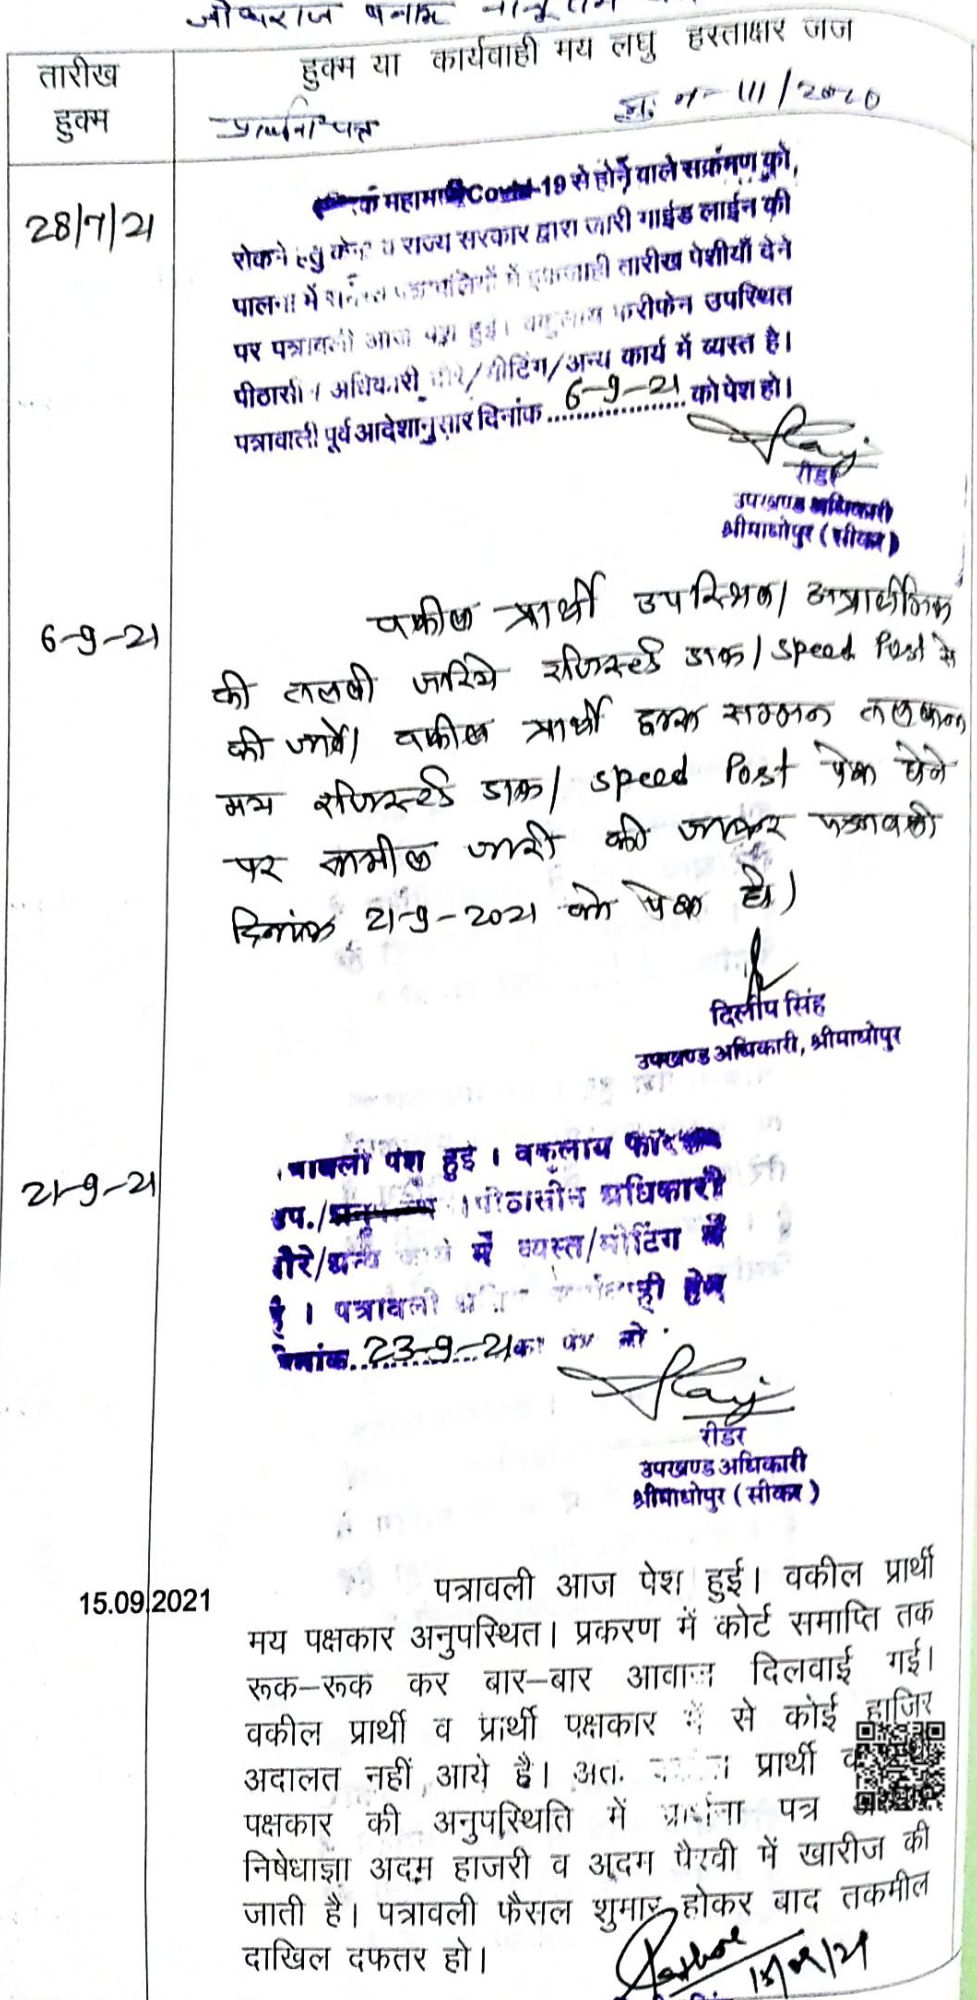 जोधराज बनाम
हुक्म या कार्यवाही मय लघु हस्ताक्षर जज
तारीख
हुक्म
प्रार्थना पत्र
111/2020
28/7/21
महामारी Covid-19 से होने वाले सक्रंमण को,
रोकने हेतु राज्य सरकार द्वारा जारी गाईड लाईन की
पालना में तारीख पेशीयाँ देने
पर पत्रावली आज पेश हुई। उपस्थित
पीठासीन अधिकारी दौरे/मीटिंग/अन्य कार्य में व्यस्त है।
पत्रावाली पूर्व आदेशानुसार दिनांक 6-9-21 को पेश हो।
रीडर
उपखण्ड अधिकारी
श्रीमाधोपुर (सीकर)
6-9-21
वकील प्रार्थी उपस्थित।
की तलबी जरिये रजिस्टर्ड डाक/ Speed Post से
की जावे। वकील प्रार्थी द्वारा सम्मन तलबाना
मय रजिस्टर्ड डाक/ Speed Post पेश होने
पर तामील जारी की जाकर पत्रावली
दिनांक 21-9-2021 को पेश हो।
दिलीप सिंह
उपखण्ड अधिकारी, श्रीमाधोपुर
21-9-21
पेश हुई। वकलाय
उप./ पीठासीन अधिकारी
में व्यस्त/मीटिंग में
है। पत्रावली
23-9-21
रीडर
उपखण्ड अधिकारी
श्रीमाधोपुर (सीकर)
15.09.2021
पत्रावली आज पेश हुई। वकील प्रार्थी
मय पक्षकार अनुपस्थित। प्रकरण में कोर्ट समाप्ति तक
रूक-रूक कर बार-बार आवाज दिलवाई गई।
वकील प्रार्थी व प्रार्थी पक्षकार में से कोई हाजिर
अदालत नहीं आये है। अतः प्रार्थी
पक्षकार की अनुपस्थिति में प्रार्थना पत्र
निषेधाज्ञा अदम हाजरी व अदम पैरवी में खारीज की
जाती है। पत्रावली फैसल शुमार होकर बाद तकमील
दाखिल दफतर हो।